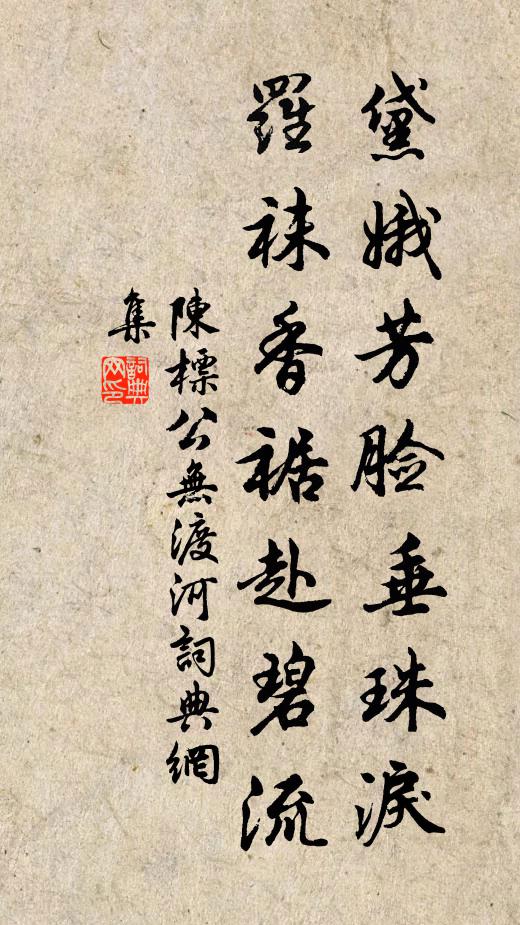 黛娥芳脸垂珠淚
羅袜香裾赴碧流
陳標公無渡河詞典網
集
詞典
网印